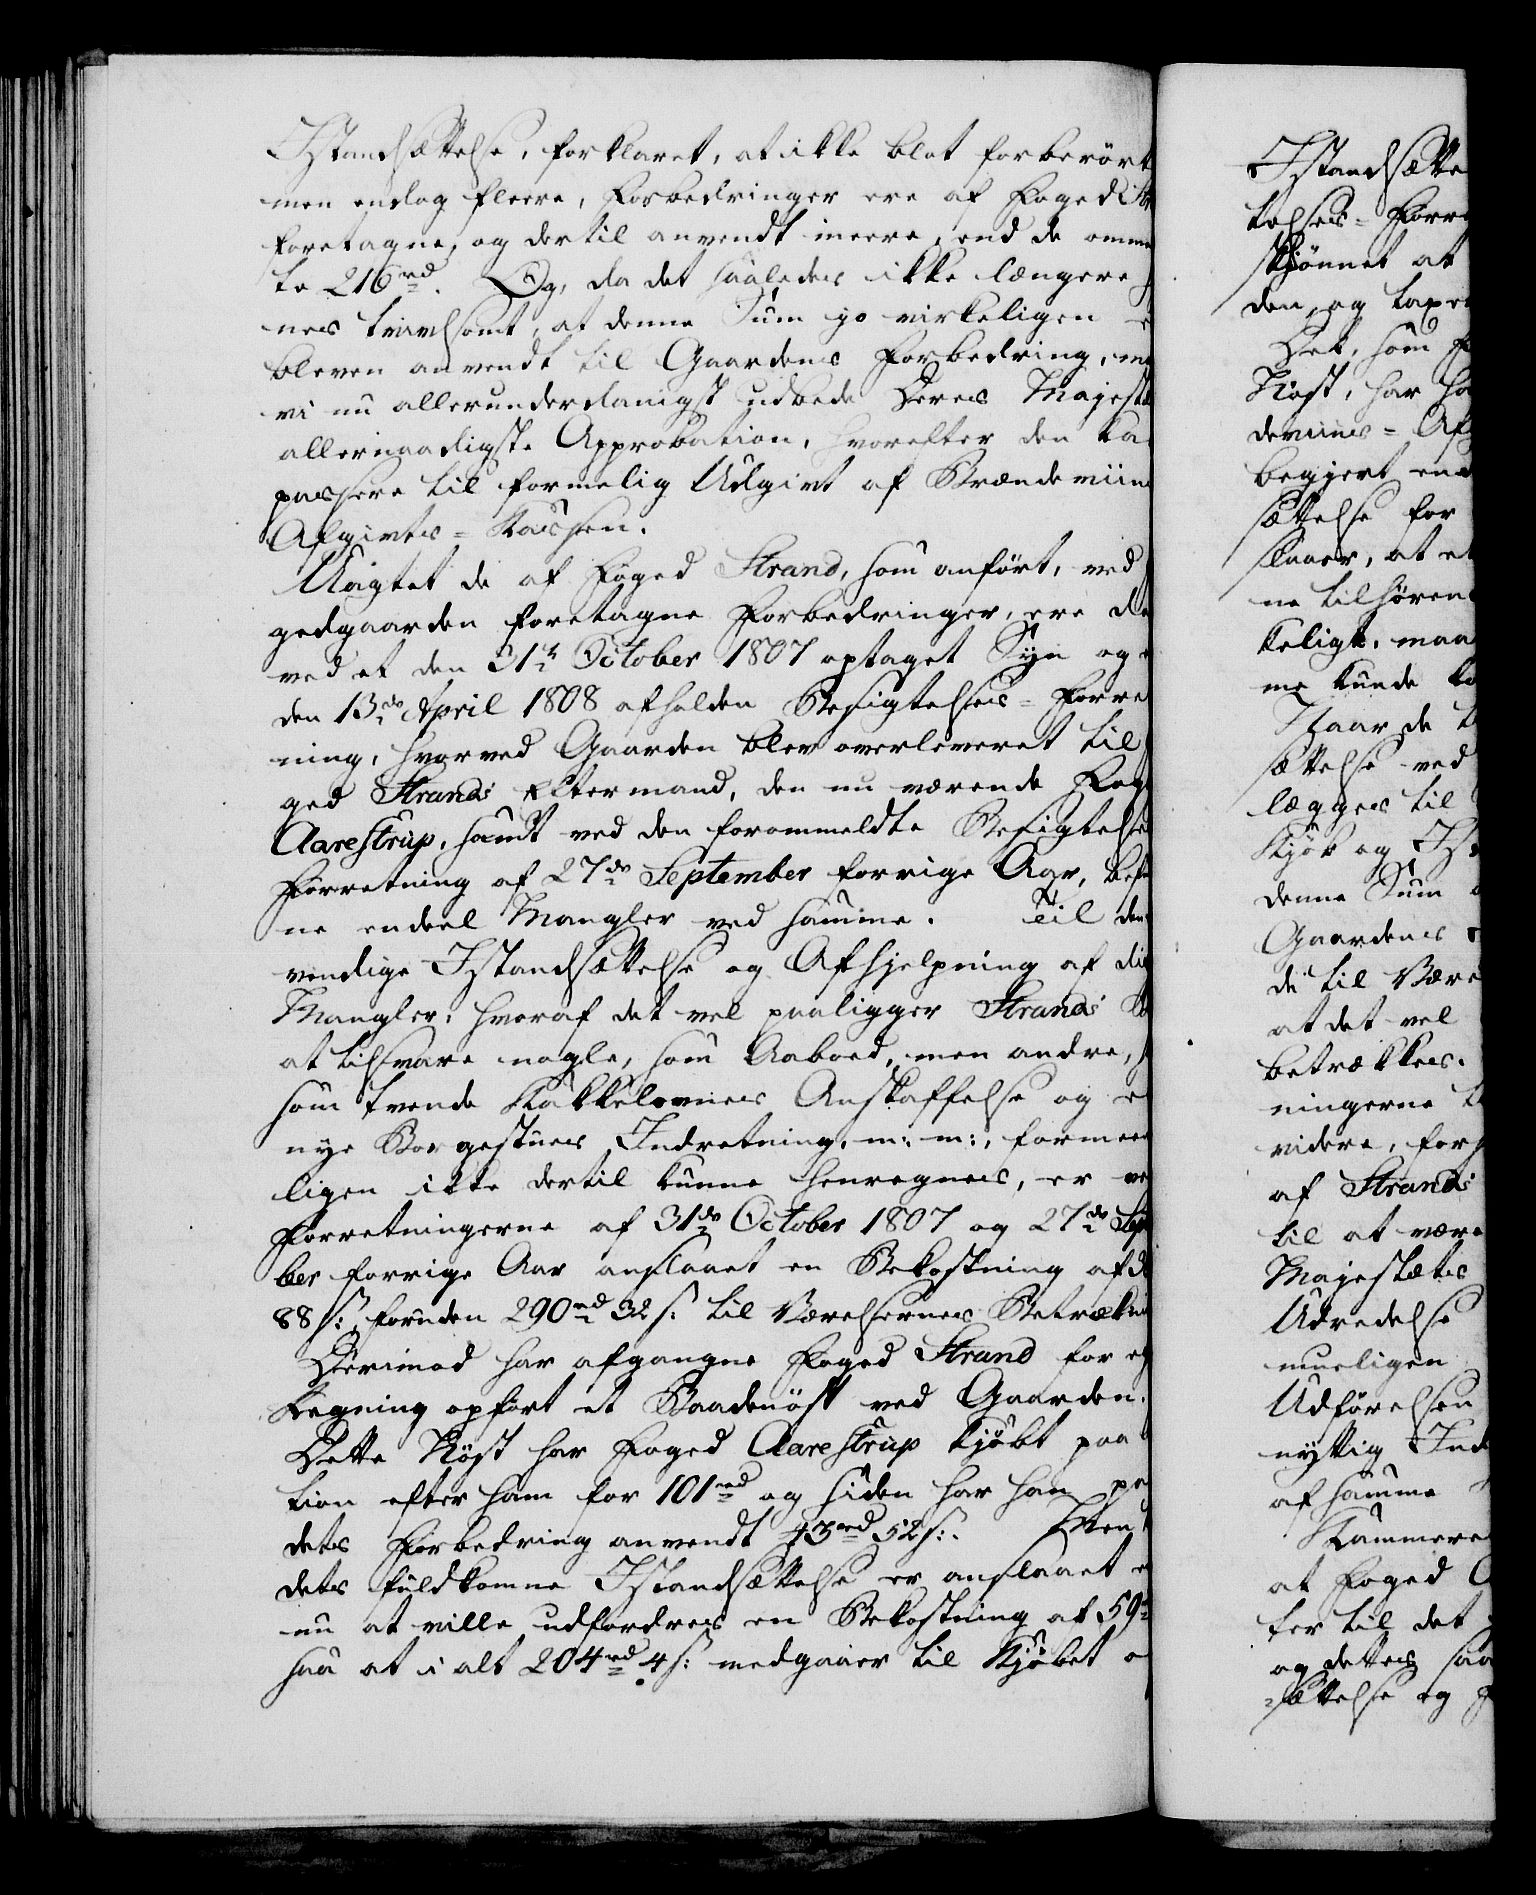 Istandsættelse, forklaret, at ikke blot forberørt
men endog fleere, Forbedringer ere af Foged
foretagne, og dertil anvendt meere, end de omme
te 216 rd. Og, da det saaledes ikke længere
nes tvivlsomt, at denne Sum jo virkeligen
bleven anvendt til Gaardens Forbedring, m
vi nu allerunderdanigst udbede Deres Majestæ
allernaadigste Approbation, hvorefter den ka
passere til formelig Udgivt af Brændeviins
Afgivts-Kassen.
Uagtet de af Foged Strand, som anført, ved
gedgaarden foretagne Forbedringer, ere de
ved et den 31te October 1807 optaget Syn og
den 13de April 1808 afholden Besigtelses-Forre
ning, hvorved Gaarden blev overleveret til
ged Strands Eftermand, den nu værende Fog
Aarestrup, samt ved den forommeldte Besigtelses
Forretning af 27de September forrige Aar, befu
ne endeel Mangler ved samme. Til den
vendige Istandsættelse og Afhjelpning af di
Mangler, hvoraf det vel paaligger Strands Bo
at tilsvare nogle, som Aaboed, men andre,
som tvende Kakkelovnes Anskaffelse og e
nye Borgestues Indretning, m: m:, formee
ligen ikke dertil kunne henregnes, er ve
Forretningerne af 31de October 1807 og 27de Sep
ber forrige Aar anslaaet en Bekostning af
88 s:, foruden 290 rd 32 s: til Værelsernes Betrækn
Derimod har afgangne Foged Strand for eg
Regning opført et Baadenøst ved Gaarden.
Dette Nøst har Foged Aarestrup kjøbt paa
tion efter ham for 101 rd og siden har han paa
dets Forbedring anvendt 43 rd 52 s:. Men
dets fuldkomne Istandsættelse er anslaaet e
nu at ville udfordres en Bekostning af 59
saa at i alt 204 rd 4 s: medgaaer til Kjøbet o
Istandsætte
telses-Forre
skjønnet at
den, og taxe
Det, som F
Nøst, har ha
deviins-Af
begjert end
sættelse for
slaaer, at e
ne tilhøren
keligt, maa
me kunde ko
Naar de
sættelse ved
lægges til
Kjøb og Ist
denne Sum
Gaardens
de til Være
at det vel
betrækkes.
ningerne
videre, for
af Strands
til at være
Majestæts
Udredelse
mueligen
Udførelsen
nyttig Ind
af samme
Kammere
at Foged A
ter til det
og dettes saa
sættelse og F